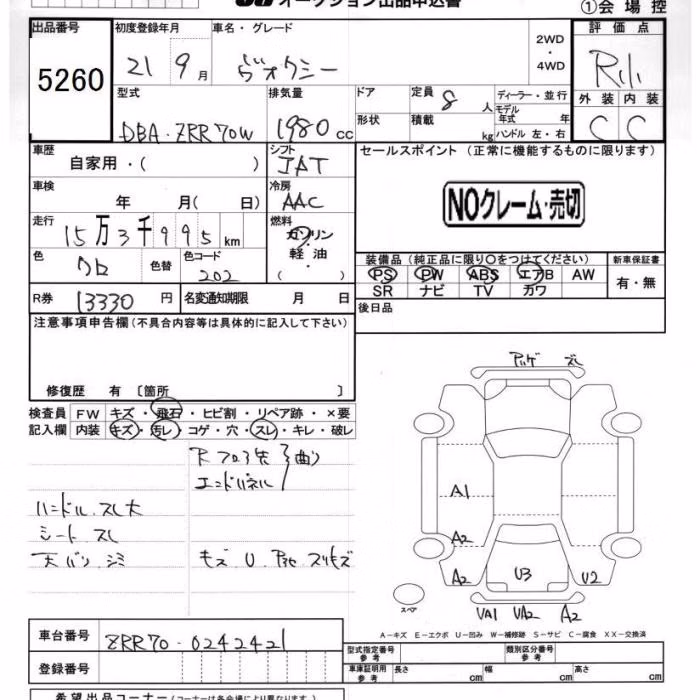 オークション出品申込書 ①会場控
出品番号 初度登録年月 車名・グレード 2WD・4WD 評価点
5260 21 9月 ヴォクシー
型式 排気量 ドア 定員 8 人 ディーラー・並行 外装 内装
DBA-ZRR70W 1980 cc 形状 積載 kg モデル年式 年 ハンドル 左・右 C C
車歴 自家用・( ) シフト IAT セールスポイント (正常に機能するものに限ります)
車検 年 月( 日) 冷房 AAC NOクレーム・売切
走行 15万3千995km 燃料 ガソリン 軽油 ( )
色 クロ 色替 色コード 202 装備品(純正品に限り〇をつけてください) 新車保証書
PS PW ABS エアB AW 有・無
SR ナビ TV カワ
R券 13330円 名変通知期限 月 日 後日品
注意事項申告欄(不具合内容等は具体的に記入して下さい)
修復歴 有 〔箇所 〕
検査員 FW キズ・飛石・ヒビ割・リペア跡・×要
記入欄 内装 キズ・汚レ・コゲ・穴・スレ・キレ・破レ
エンドパネル 曲り
ハンドル スレ大
シート スレ
天バリ シミ キズ U
スレ
A1
A2
A2 U3 U2
スペア
UA1 UA2 A2
A-キズ E-エクボ U-凹み W-補修跡 S-サビ C-腐食 XX-交換済
車台番号 ZRR70-0242421 型式指定番号 参考 類別区分番号 参考
登録番号 車庫証明用 参考 長さ cm 幅 cm 高さ cm
希望出品コーナー(コーナーは各会場により異なります)